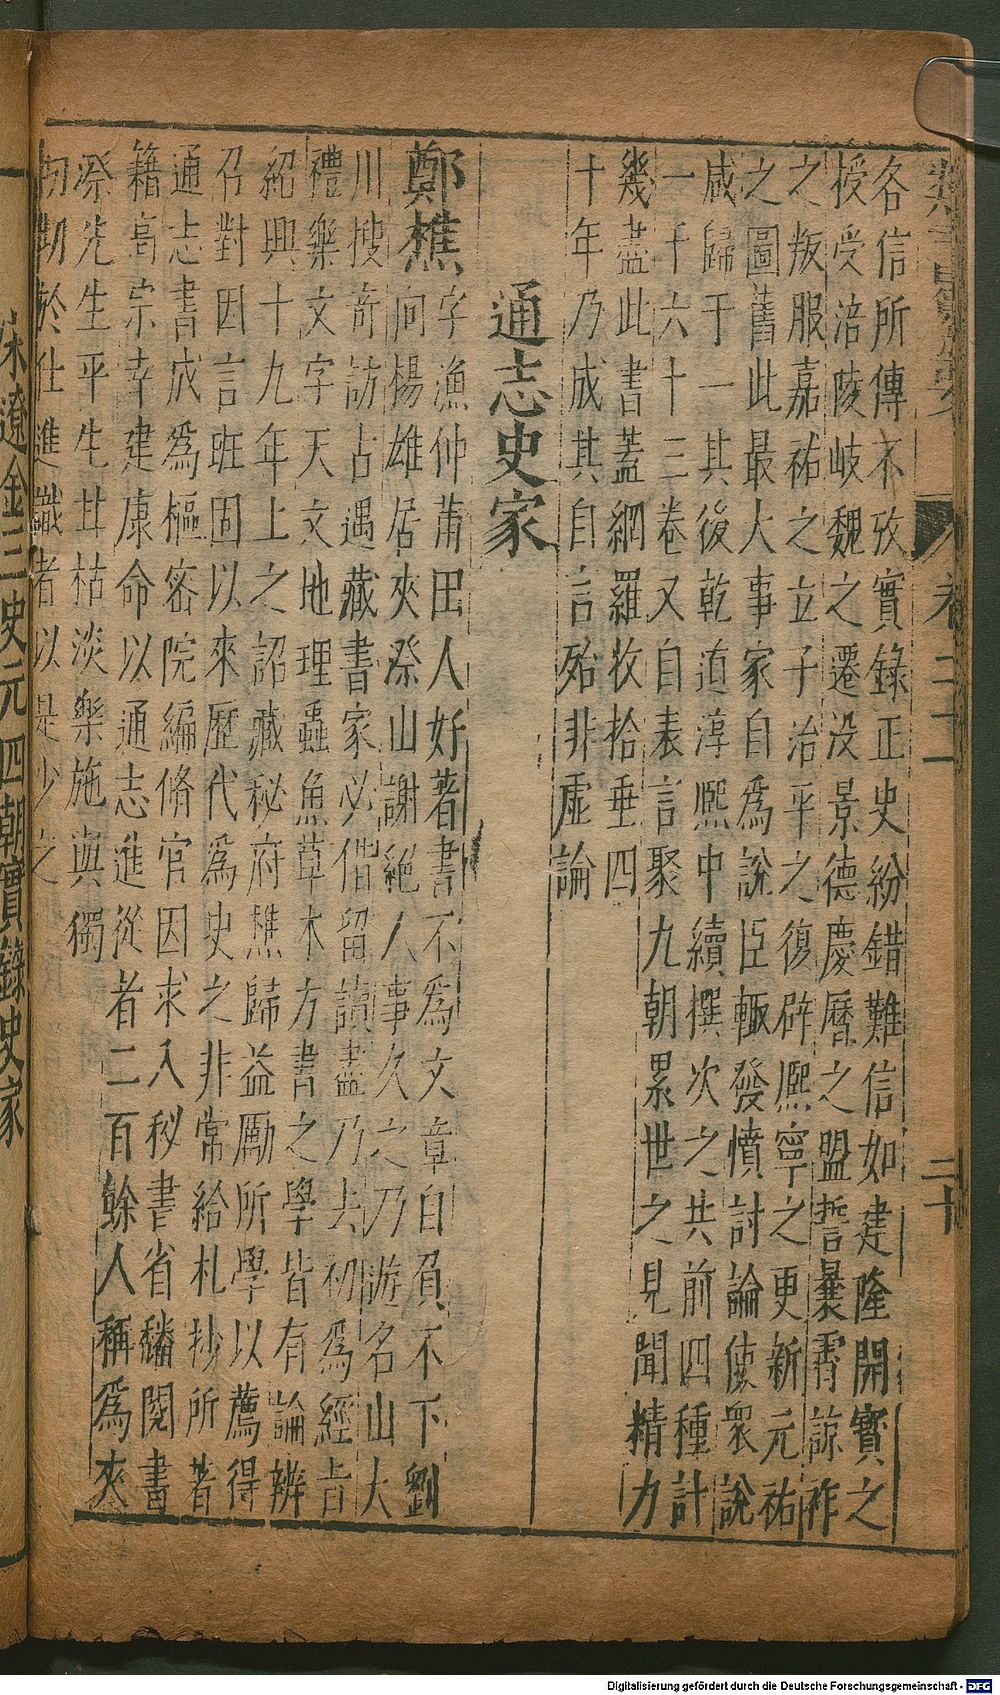 卷二十二
二十
各信所傳不攷實錄正史紛錯難信如建隆開寶之
授受涪陵岐魏之遷没景德慶曆之盟誓曩霄諒祚
之叛服嘉祐之立子治平之復辟熈寧之更新元祐
之圖舊此最大事家自爲說臣輒發憤討論使衆說
咸歸于一其後乾道淳熈中續撰次之共前四種計
一千六十三卷又自表言聚九朝累世之見聞精力
幾盡此書蓋網羅收拾垂四
十年乃成其自言殆非虛論
通志史家
鄭樵字漁仲莆田人好著書不爲文章自負不下劉
向楊雄居夾漈山謝絕人事久之乃遊名山大
川搜竒訪古遇藏書家必借留讀盡乃去初爲經旨
禮樂文字天文地理蟲魚草木方書之學皆有論辨
紹興十九年上之詔藏秘府樵歸益勵所學以薦得
召對因言班固以來歷代爲史之非常給札抄所著
通志書成爲樞密院編脩官因求入秘書省繙閱書
籍高宗幸建康命以通志進從者二百餘人稱爲夾
漈先生平生甘枯淡樂施與獨
切切於仕進識者以是少之
宋遼金三史元四朝實錄史家
Digitalisierung gefördert durch die Deutsche Forschungsgemeinschaft - DFG